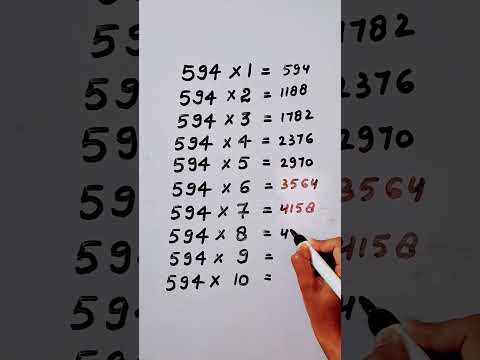 594 × 1 = 594
594 × 2 = 1188
594 × 3 = 1782
594 × 4 = 2376
594 × 5 = 2970
594 × 6 = 3564
594 × 7 = 4158
594 × 8 = 4
594 × 9 =
594 × 10 =